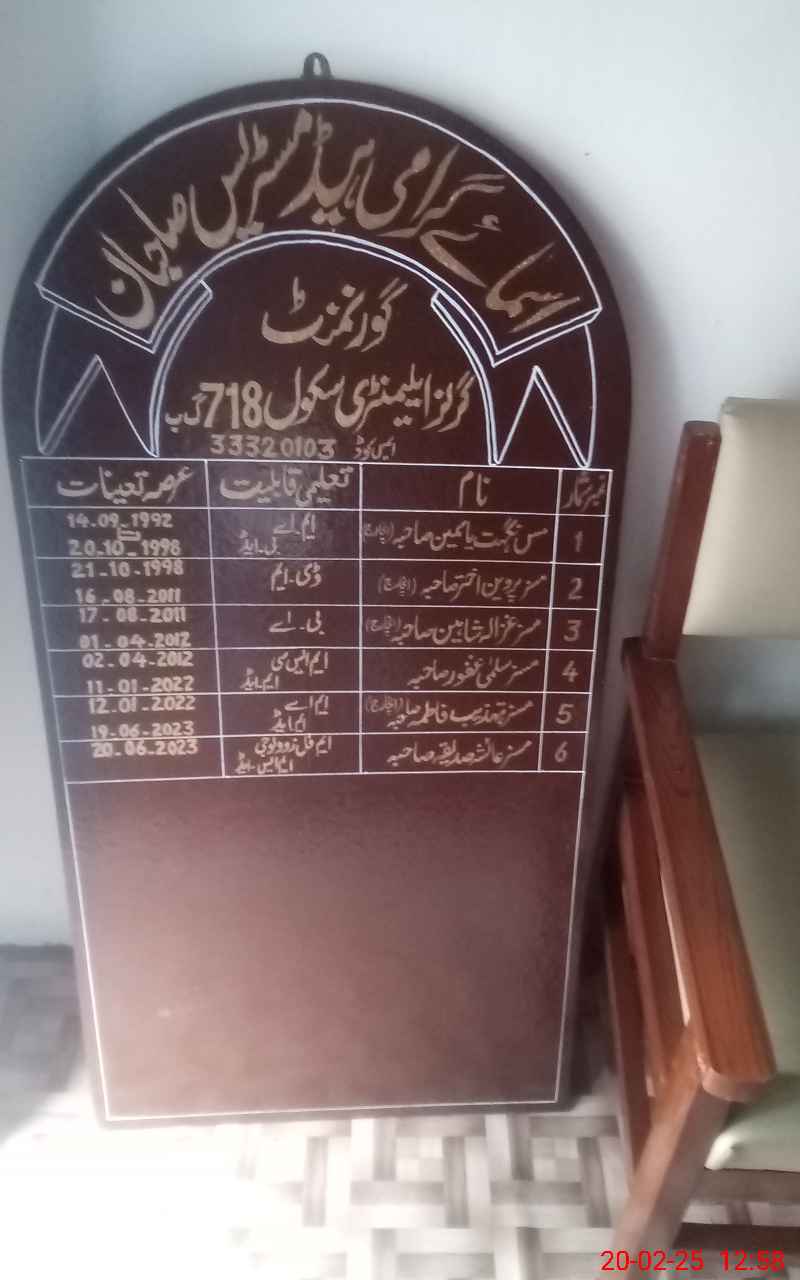 اسمائے گرامی ہیڈ مسٹریس صاحبان
گورنمنٹ
گرلز ایلیمنٹری سکول 718 گ ب
ایس کوڈ 33320103
نمبر شمار نام تعلیمی قابلیت عرصہ تعینات
1 مس نگہت یاسمین صاحبہ (انچارج) ایم اے بی۔ایڈ 14.09_1992 تا 20.10_1998
2 مسز پروین اختر صاحبہ (انچارج) ڈی۔ایم 21-10-1998 16-08-2011
3 مسز غزالہ شاہین صاحبہ (انچارج) بی۔اے 17-08-2011 01-04-2012
4 مسز سلمی غفور صاحبہ ایم ایس سی ایم۔ایڈ 02-04-2012 11-01-2022
5 مسز تہذیب فاطمہ صاحبہ (انچارج) ایم اے ایم ایڈ 12.01-2022 19-06-2023
6 مسز عائشہ صدیقہ صاحبہ ایم فل زوولوجی ایم ایس۔ایڈ 20-06-2023
20-02-25 12:58